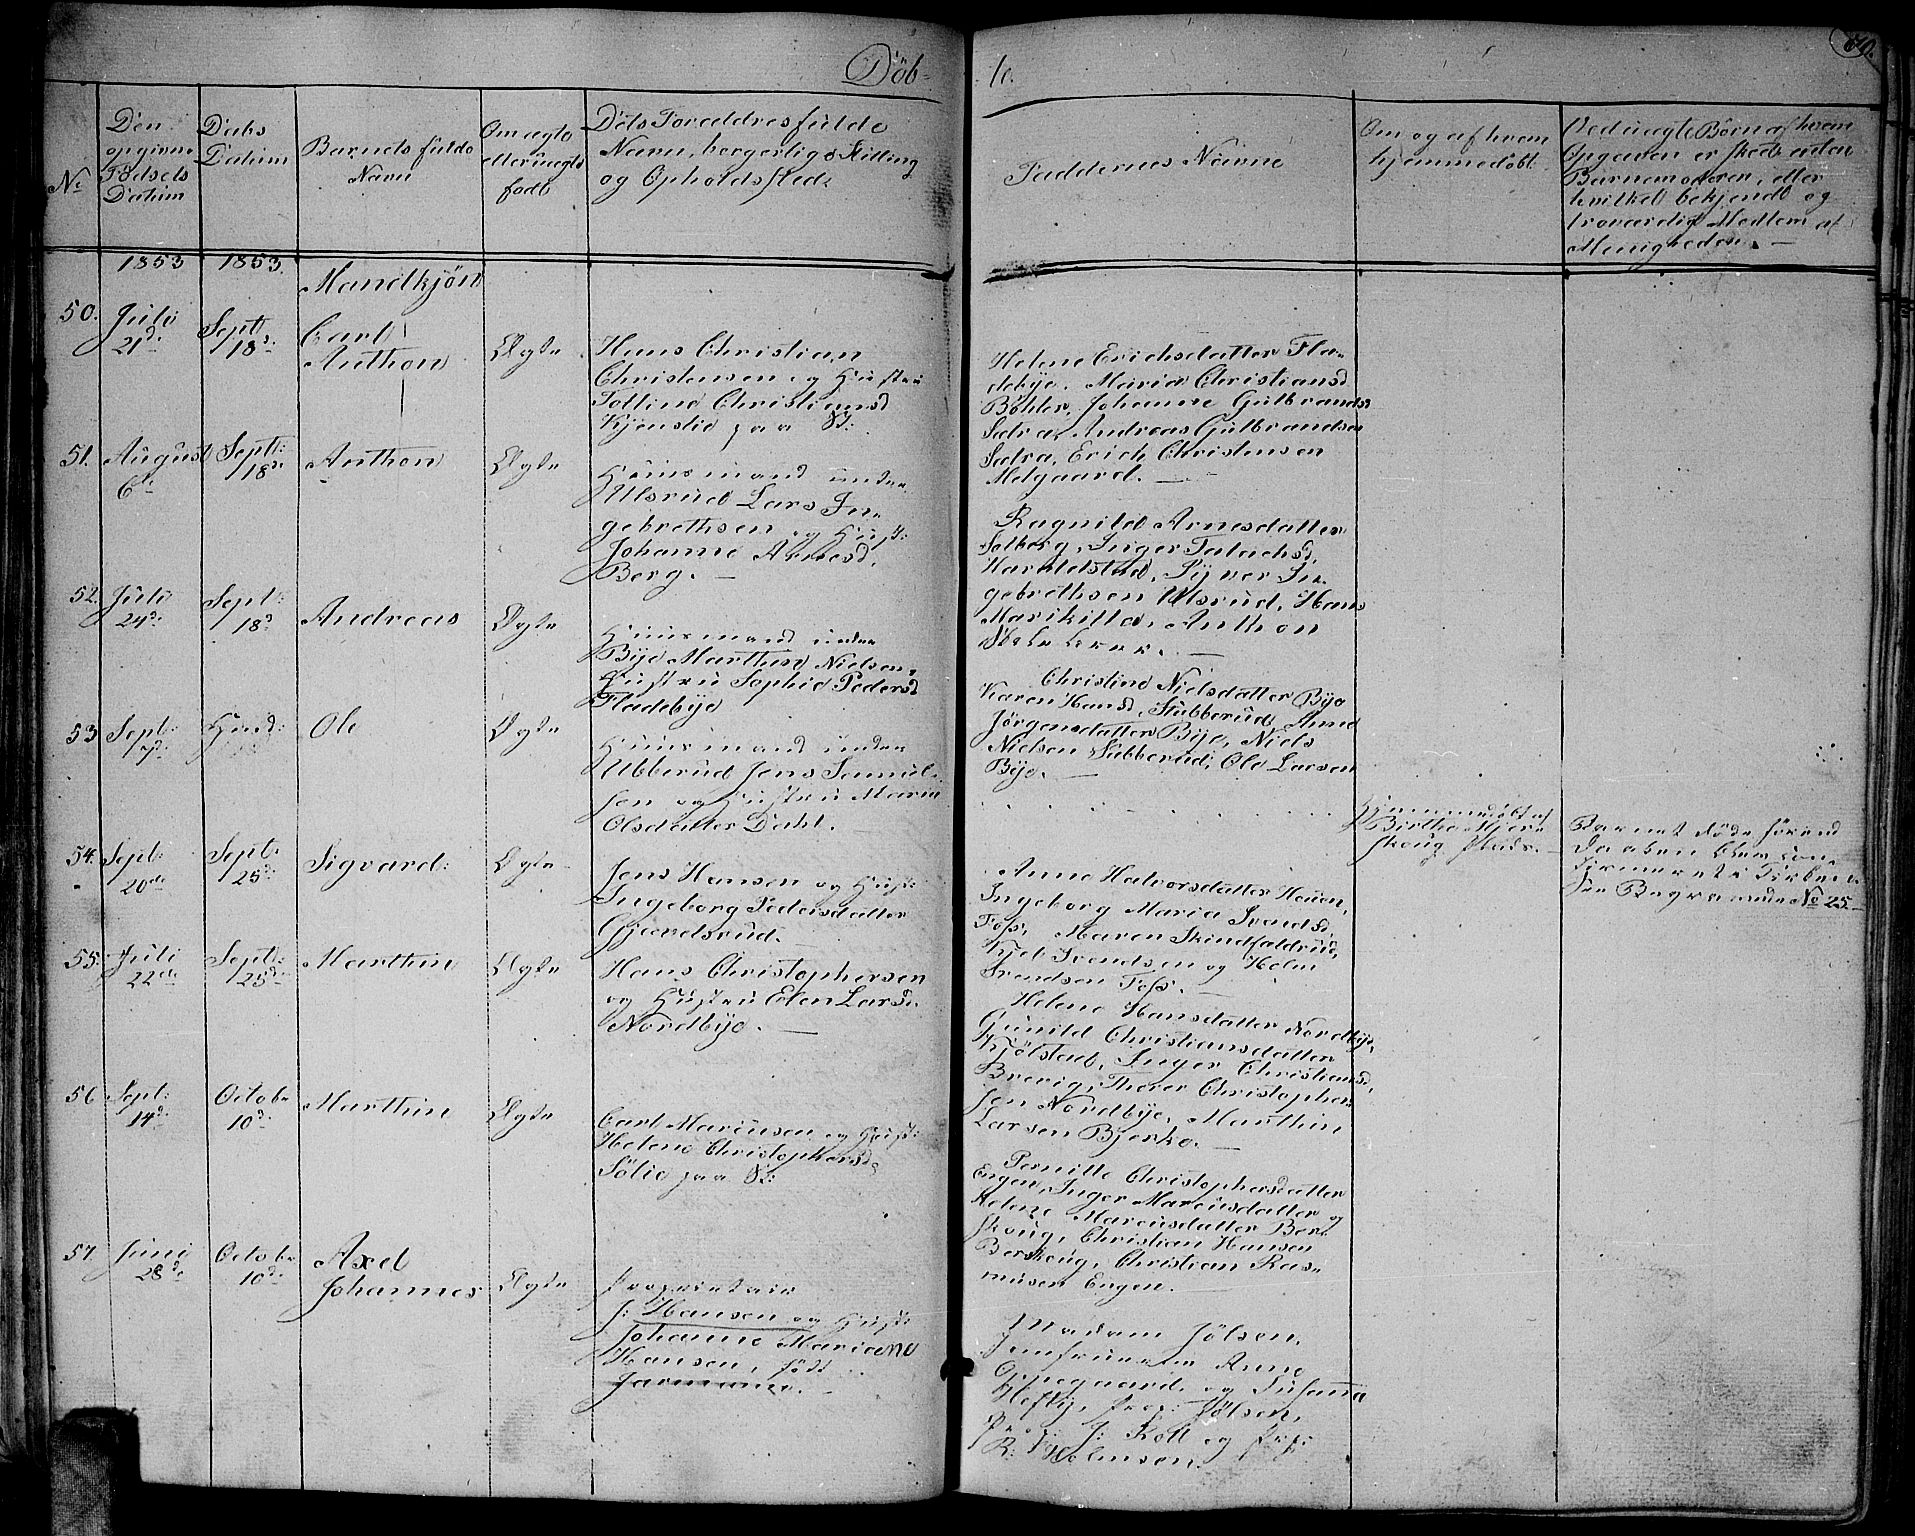 Döb-
te.
69.
No
Den
opgivne
Födsels
Datum
Daabs
Datum
Barnets fulde
Navn
Om ægte
eller uægte
födt
Dets Foreldres fulde
Navn, borgerlig Stilling
og Opholdssted.
Faddernes Navne
Om og af hvem
hjemmedöbt.
Ved uægte Börn af hvem
Opgaven er skedt enten
Barnemoderen, eller
hvilket bekjendt og
troværdig Medlem af
Menigheden. —
1853
1853.
Mandkjön
50.
Juli
21d:
Sept
18d:
Carl
Anthon
Ægte
Hans Christian
Christensen og Hustru
Christiansd
Kjenslie paa St:
Helene Erichsdatter Fla-
debye. Maria Christiansd
Böhler, Johanne Gulbrandsd
Sætra, Andreas Gulbrandsen
Sætra, Erich Christensen
Melgaard. —
51.
August
6te
Sept:
18d:
Anthon
Ægte
Huusmand under
Ulsrud Lars In-
gebrethsen og Hust:
Johanne Arnesd,
Berg. —
Ragnild Arnesdatter
Solberg, Inger
Haraldstad, Syver In-
gebrethsen Ulsrud, Hans
Marikilla, Anthon
52.
Juli
24d:
Sept:
18d:
Andreas
Ægte
Huusmand under
Bye Marthin Nielsen,
Hustru Sophie Pedersd
Fladebye
Christine Nielsdatter Bye
Karen Hansd, Stubberud, Anne
Jörgensdatter Bye, Niels
Nielsen Subberud, Ole Larsen
Bye. —
53
Sept:
7d:
Ole
Ægte
Huusmand under
Ubberud Jens Semul-
sen og Hustru Maria
Olsdatter Dahl. —
Hjemmedöbt af
Birthe
skoug Plads. —
Barnet döde förend
Daaben blev con-
firmeret i Kirken
See Begravede No 25.
54.
Sept:
20de
Sept:
25d:
Sigvard:
Ægte
Jens Hansen og Hust:
Ingeborg Pedersdatter
Gjærdsrud. —
Anne Halvorsdatter Hauen,
Ingeborg Maria Svendsd,
Foss, Maren Skindfaldrud,
Kjel Svendsen og Helm
Svendsen Foss. —
55.
Juli
22de
Sept:
25d:
Marthin
Ægte
Hans Christophersen
og Hustru Elen Larsd.
Nordbye. —
Helene Hansdatter Nordbye,
Gunild Christiansdatter
Kjölstad, Inger Christiansd,
Brevig, Thorer Christopher-
sen Nordbye, Marthin
Larsen Bjerke. —
56
Sept:
14d:
Octobr
10d:
Marthin
Ægte
Carl Marcusen og Hust:
Helene Christophersd
Sölie paa St:
Pernille Christophersdatter
Engen, Inger Marcusdatter og
Helene Marcusdatter Ber-
skoug, Christian Hansen
Berskoug, Christian Ras-
musen Engen. —
57.
Juni
28de
Octobr
10d:
Axel
Johannes
Ægte
Proprietair
J: Hansen og Hust:
Johanne Mariane
Hansen, födt
Jarmann. —
Madam Jölsen,
Jomfruerne Anne
Oppegaard, og Susanna
Heftij, Prop: Jölsen,
J: Koll og
R: Holmsen.